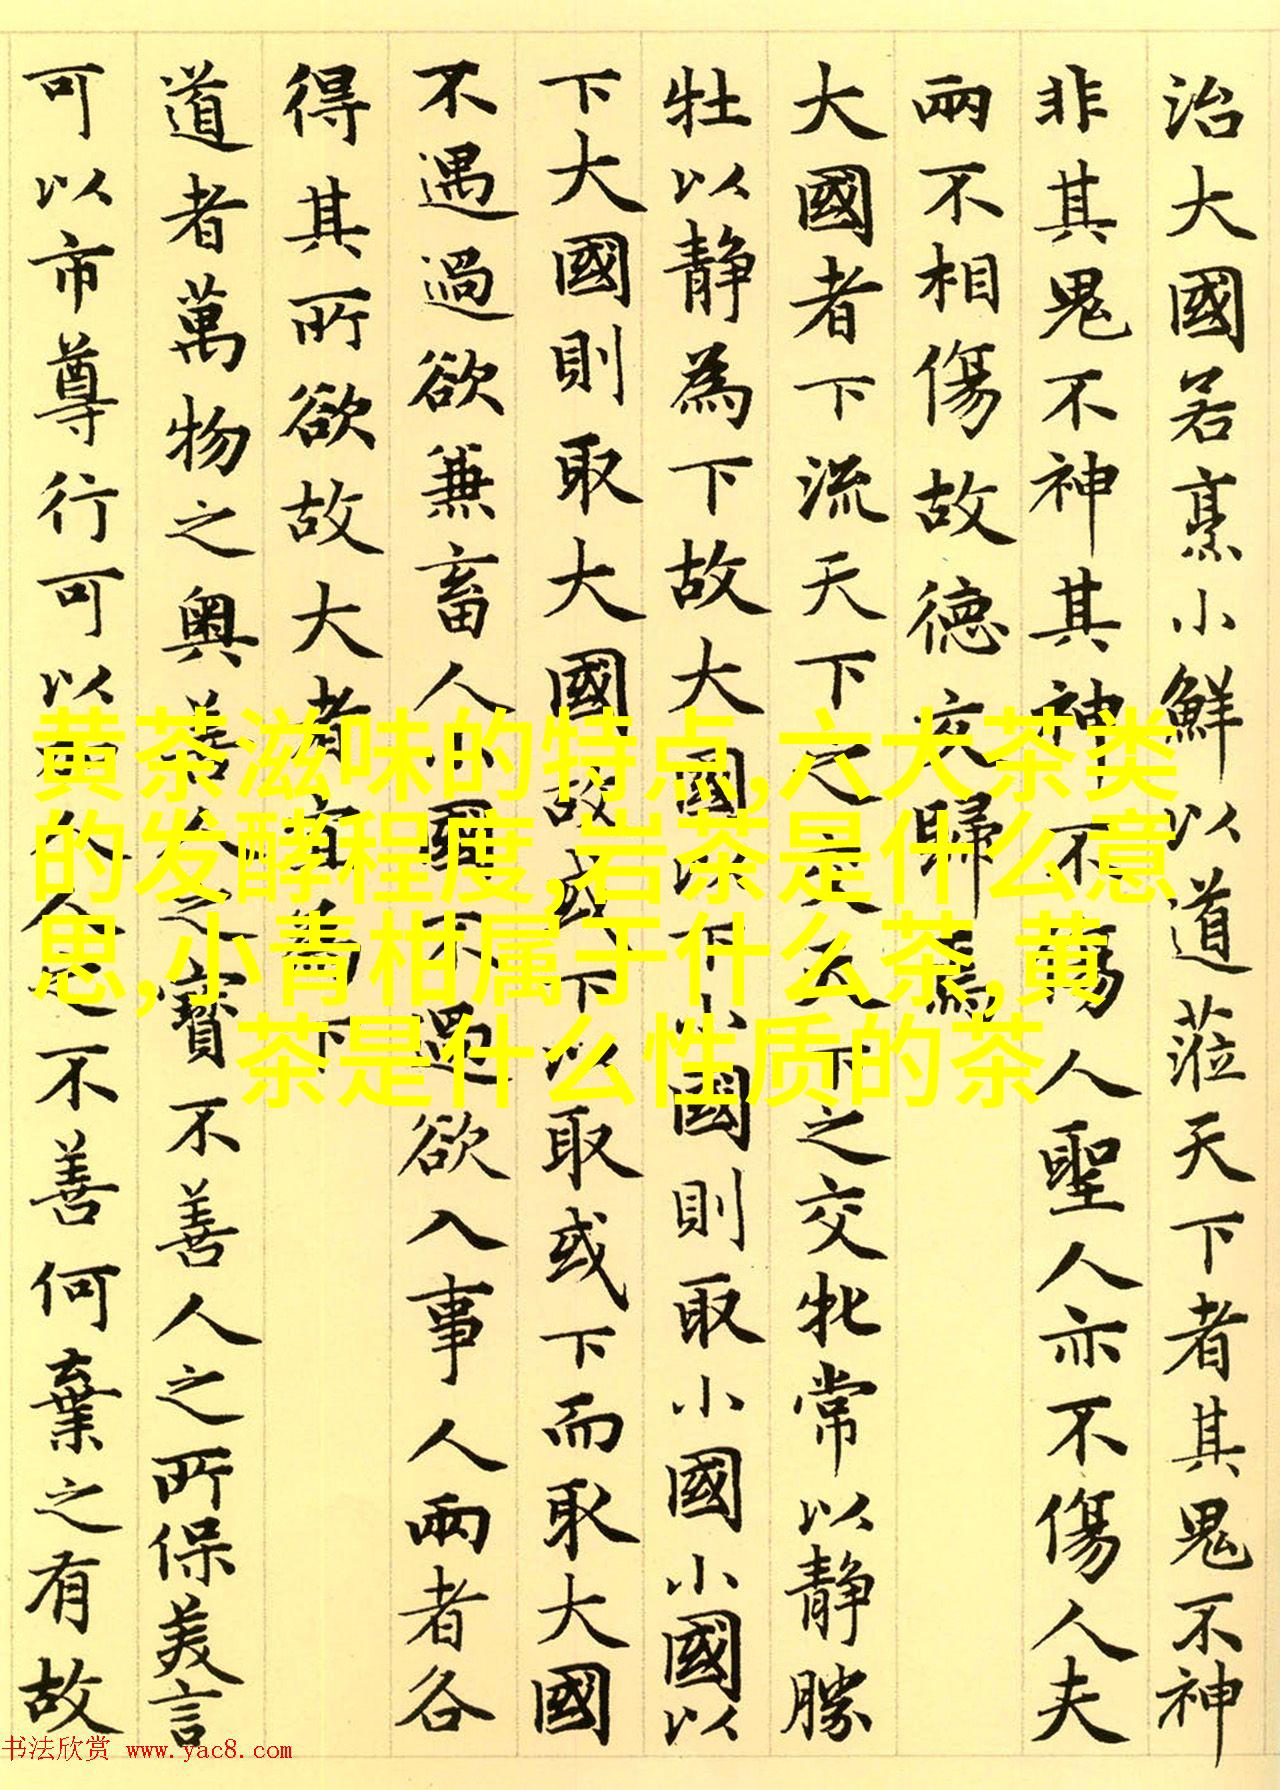 治大國若烹小鮮以道莅天下者其鬼不神
非其鬼不神其神不傷人聖人亦不傷人夫
兩不相傷故德交歸焉
大國者下流天下之交天下之交牝常以静勝
牡以静為下故大國以下小國則取小國小國以
下大國則取大國故或下以取或下而取大國
不遇過欲兼畜人小國不過欲入事人兩者各
得其所欲故大者宜為下
道者萬物之奥善人之寶不善人之所保美言
可以市尊行可以加人人之不善何棄之有故
黄茶滋味的特点,六大茶类
的发酵程度,岩茶是什么意
思,小青柑属于什么茶,黄
茶是什么性质的茶
书法欣赏 www.yac8.com